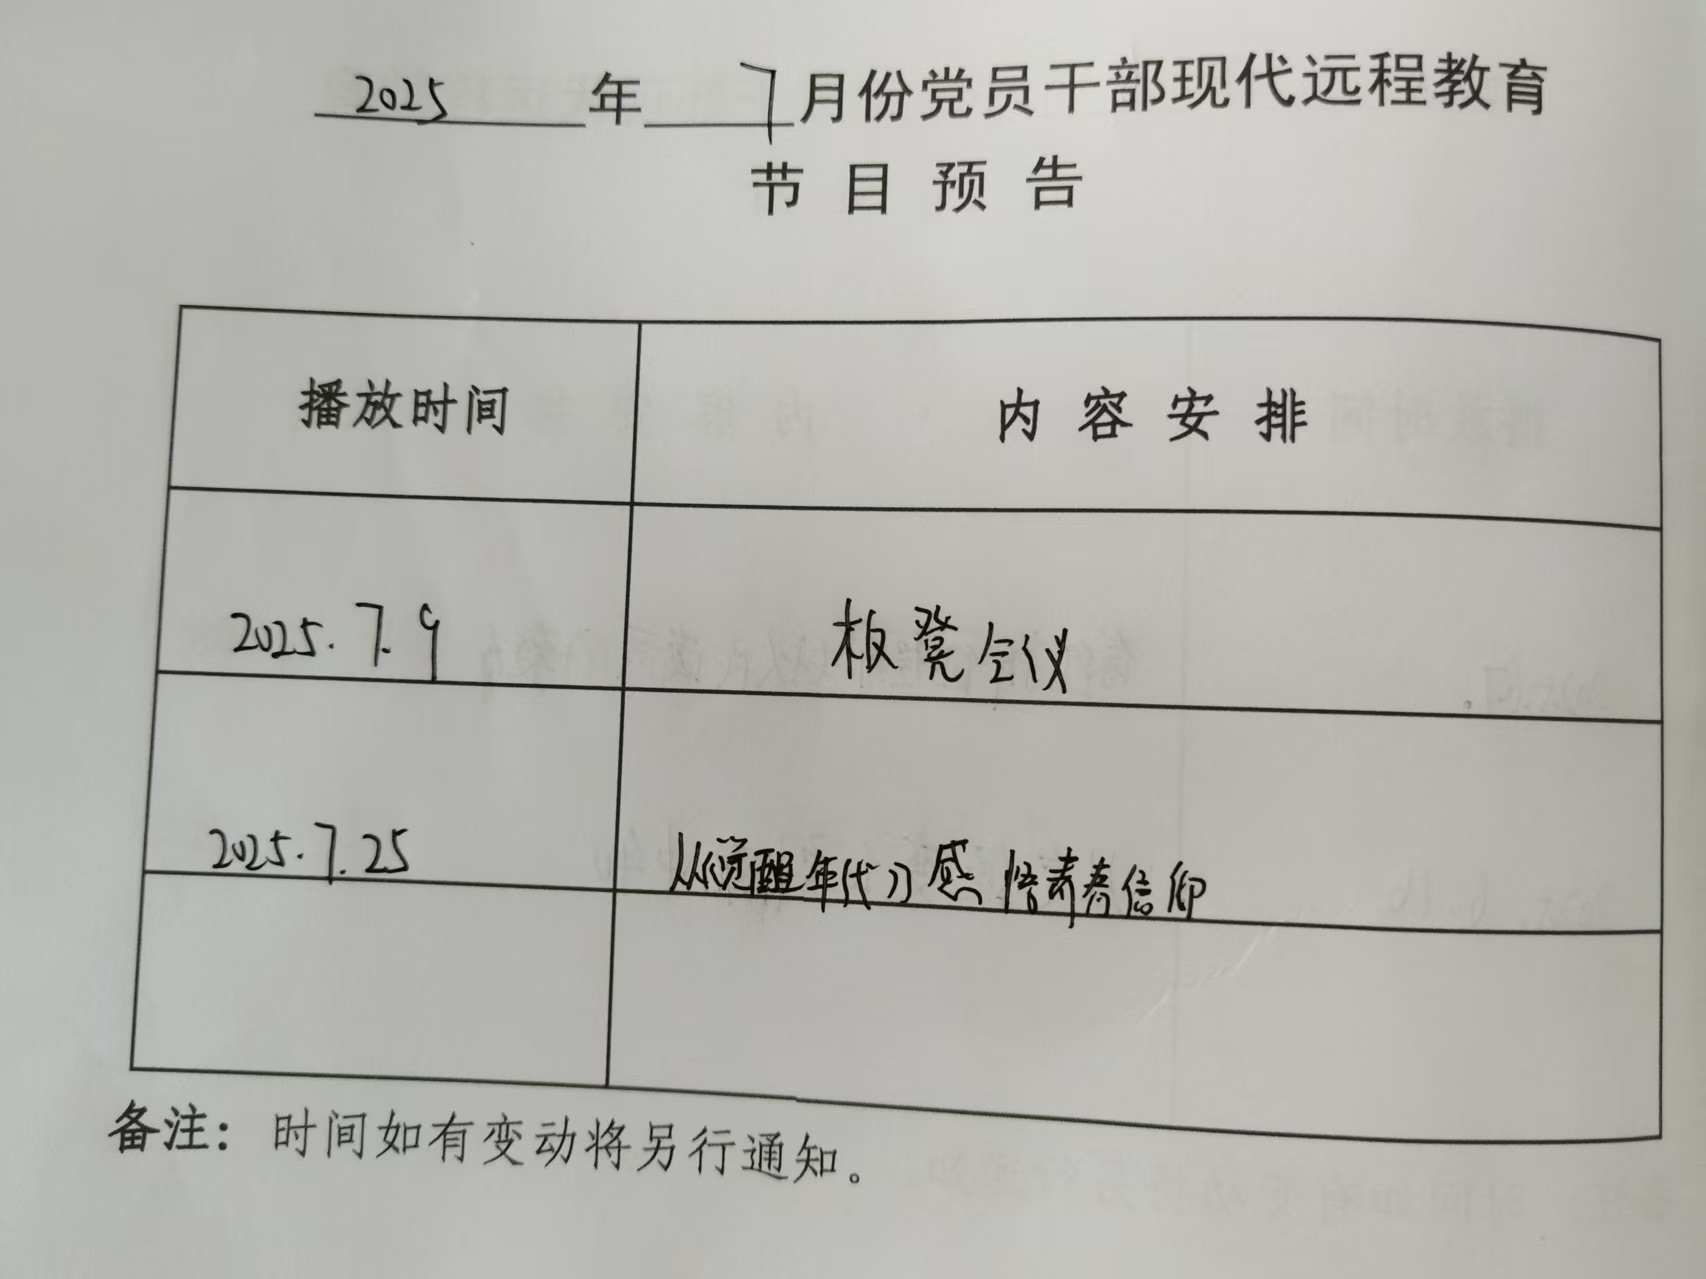 2025年 7月份党员干部现代远程教育
节目预告
播放时间 内容安排
2025.7.9 板凳会议
2025.7.25 从《觉醒年代》感悟青春信仰
备注：时间如有变动将另行通知。